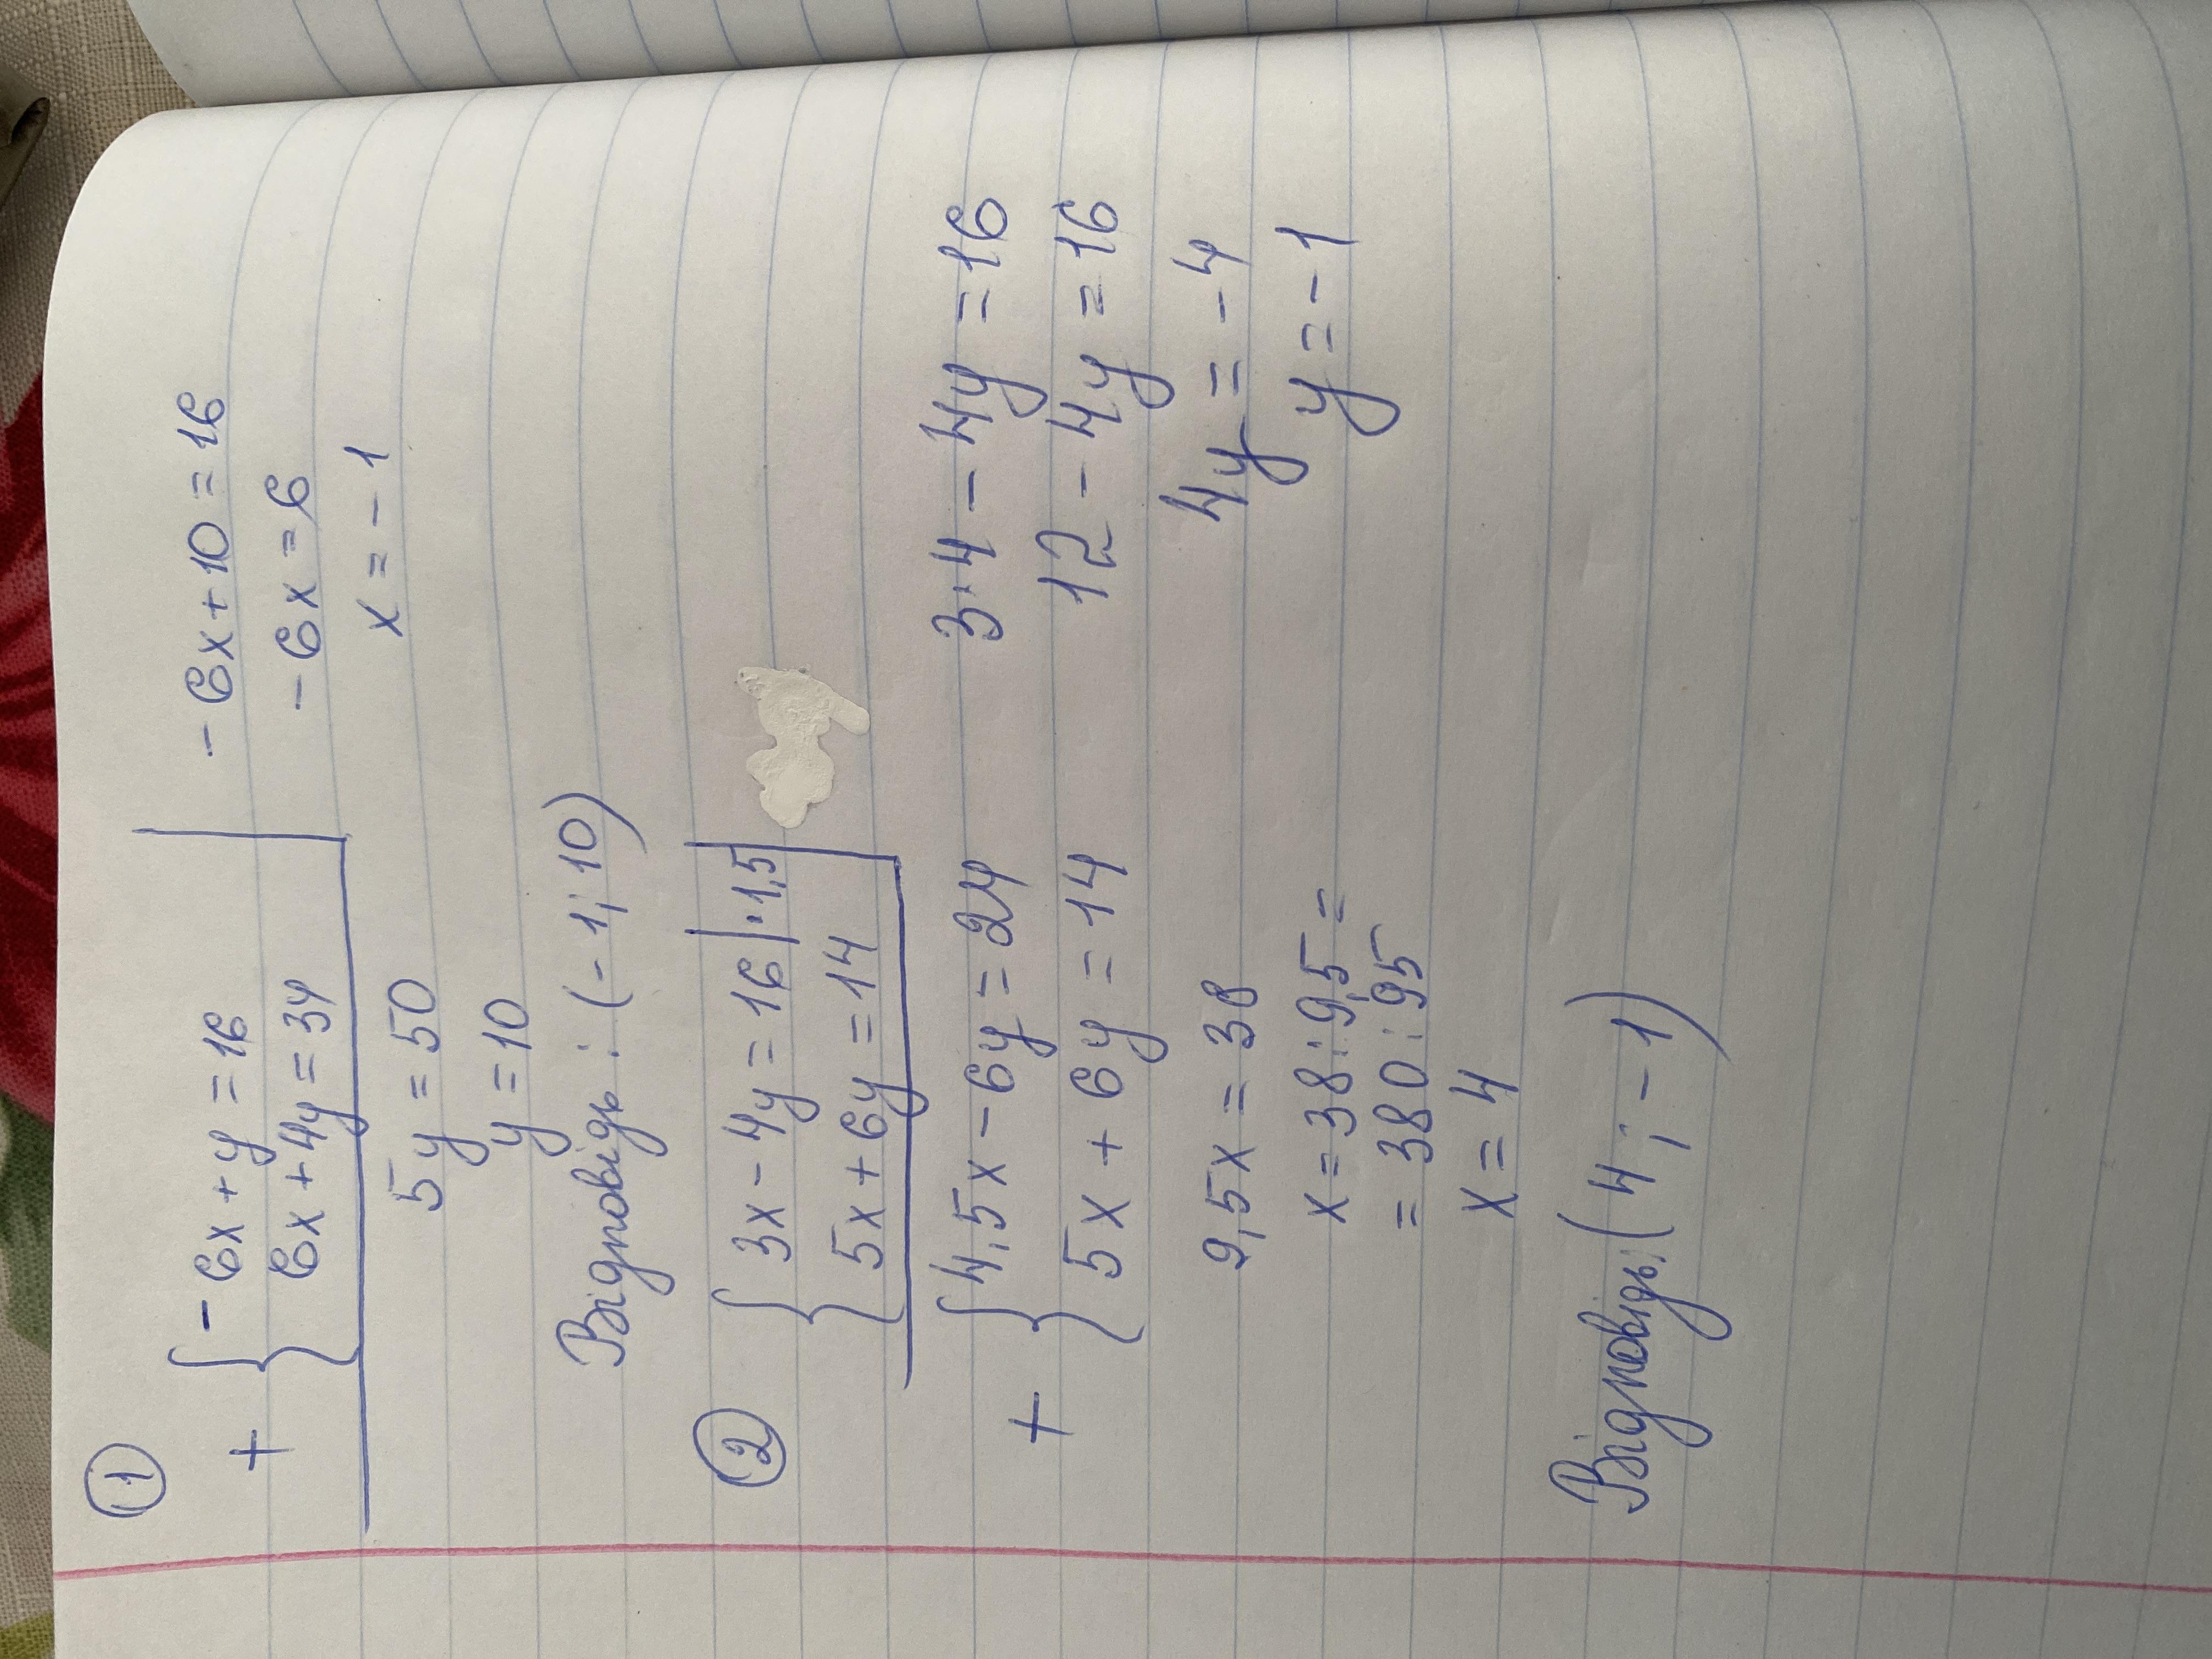 ①
+ { - 6x + y = 16
6x + 4y = 34
5y = 50
y = 10
- 6x + 10 = 16
- 6x = 6
x = - 1
Відповідь: (- 1; 10)
②
{ 3x - 4y = 16 | · 1,5
5x + 6y = 14
+ { 4,5x - 6y = 24
5x + 6y = 14
9,5x = 38
x = 38 : 9,5 =
= 380 : 95
x = 4
3 · 4 - 4y = 16
12 - 4y = 16
4y = - 4
y = - 1
Відповідь: (4; - 1)